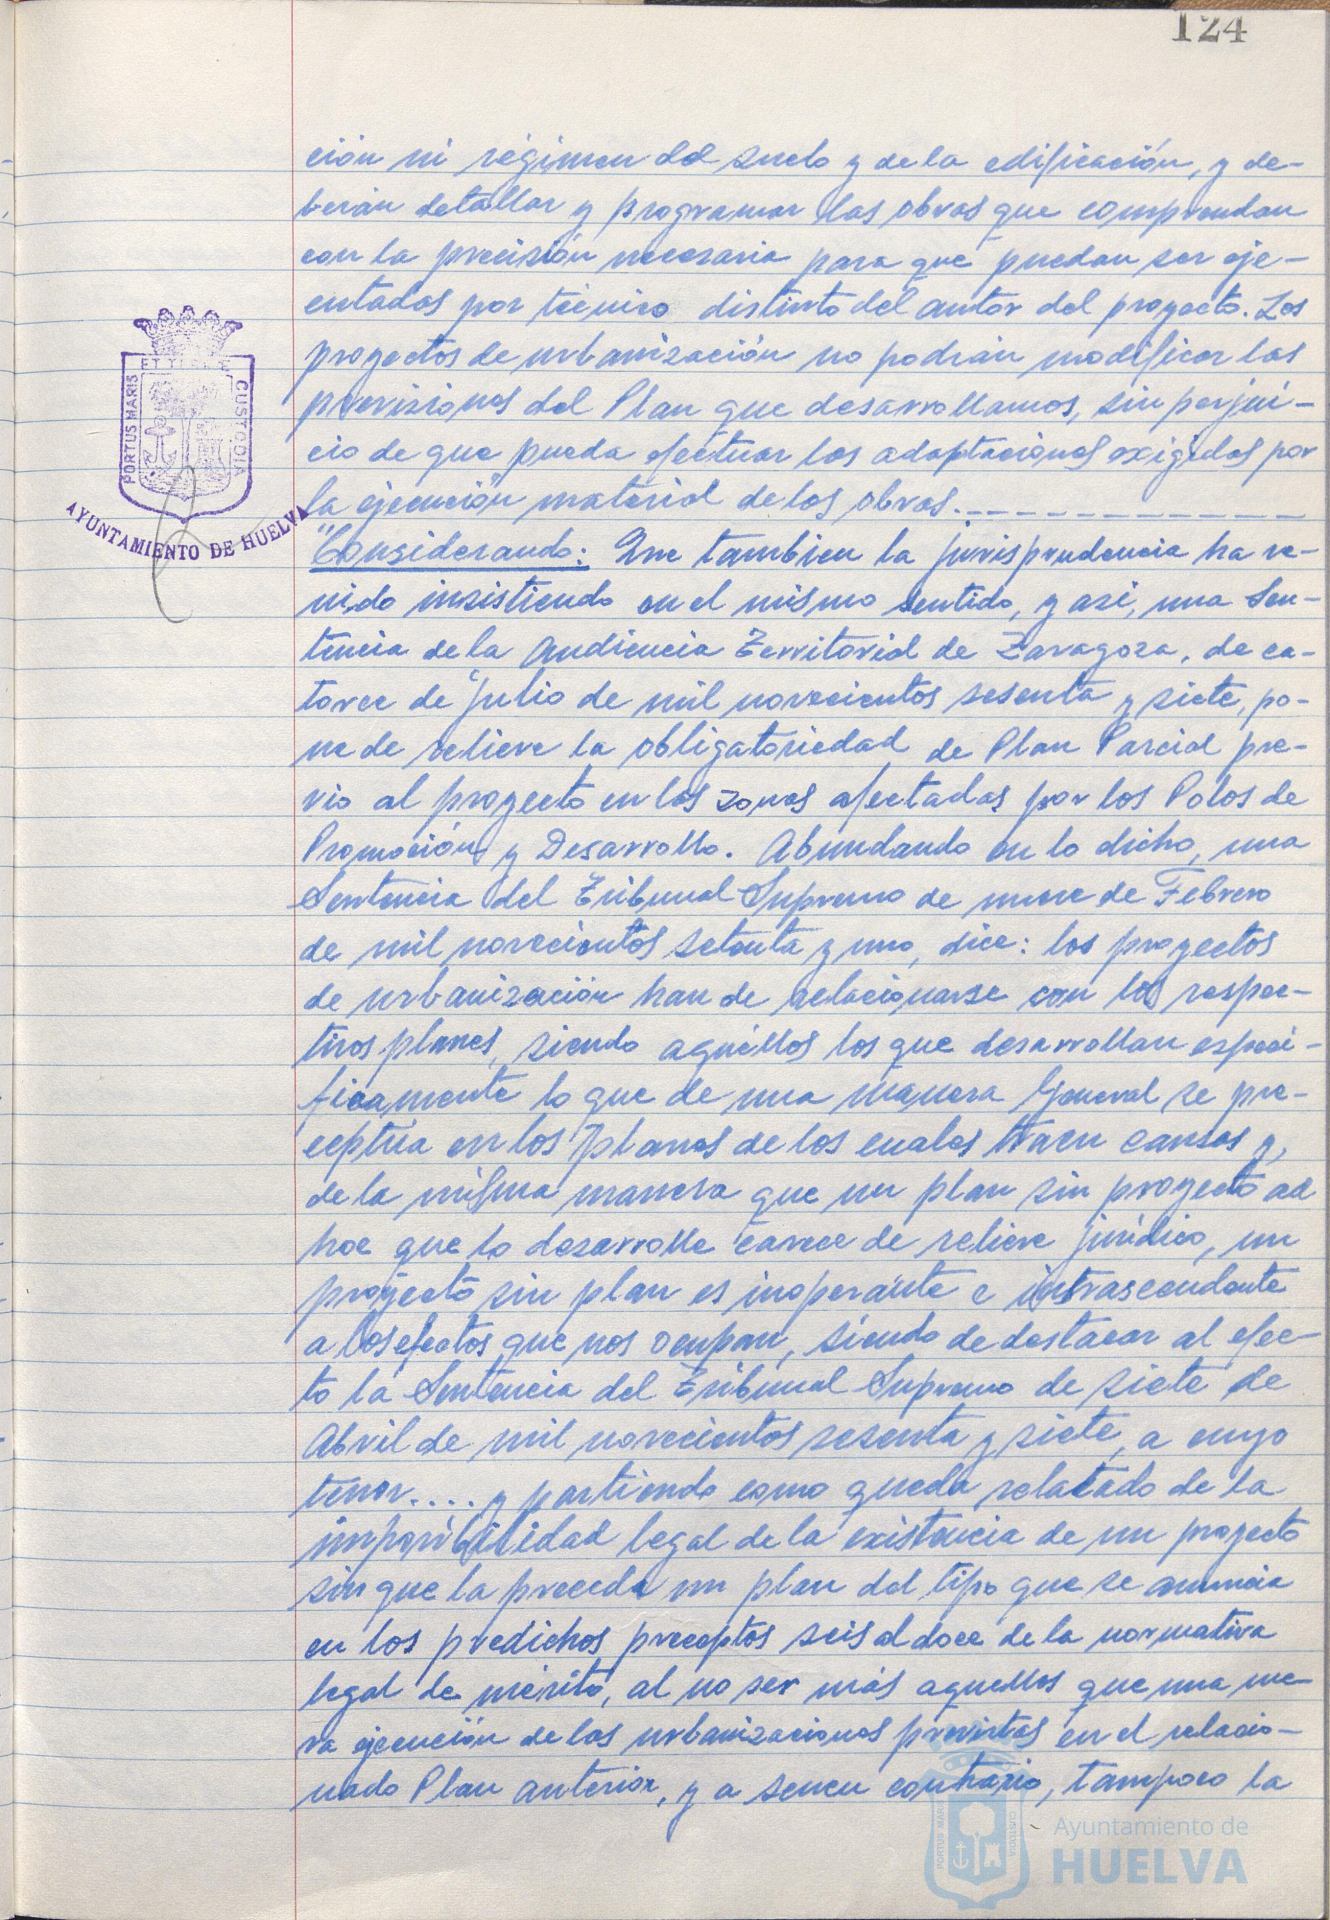 124
ción ni régimen del suelo y de la edificación, y de-
berán detallar y programar las obras que comprendan
con la precisión necesaria para que puedan ser eje-
cutadas por técnico distinto del autor del proyecto. Los
proyectos de urbanización no podrán modificar las
previsiones del Plan que desarrollamos, sin perjui-
cio de que pueda efectuar las adaptaciones exigidas por
la ejecución material de las obras.
"Considerando: Que tambien la jurisprudencia ha ve-
nido insistiendo en el mismo sentido, y asi, una Sen-
tencia de la Audiencia Territorial de Zaragoza, de ca-
torce de Julio de mil novecientos sesenta y siete, po-
ne de relieve la obligatoriedad de Plan Parcial pre-
vio al proyecto en las zonas afectadas por los Polos de
Promoción y Desarrollo. Abundando en lo dicho, una
Sentencia del Tribunal Supremo de nueve de Febrero
de mil novecientos setenta y uno, dice: los proyectos
de urbanización han de relacionarse con los respec-
tivos planes, siendo aquéllos los que desarrollan especi-
ficamente lo que de una manera General se pre-
ceptúa en los planes de los cuales traen causas y,
de la misma manera que un plan sin proyecto ad
hoc que lo desarrolle carece de relieve jurídico, un
proyecto sin plan es inoperante e intrascendente
a los efectos que nos ocupan, siendo de destacar al efec-
to la Sentencia del Tribunal Supremo de siete de
Abril de mil novecientos sesenta y siete, a cuyo
tenor.... y partiendo como queda relatado de la
imposibilidad legal de la existencia de un proyecto
sin que la preceda un plan del tipo que se anuncia
en los predichos preceptos seis al doce de la normativa
legal de mérito, al no ser más aquellos que una me-
ra ejecución de las urbanizaciones previstas en el relacio-
nado Plan anterior, y a sensu contrario, tampoco la
PORTUS MARIS
ET TERRE
CUSTODIA
AYUNTAMIENTO DE HUELVA
PORTUS MARIS
CUSTODIA
Ayuntamiento de
HUELVA